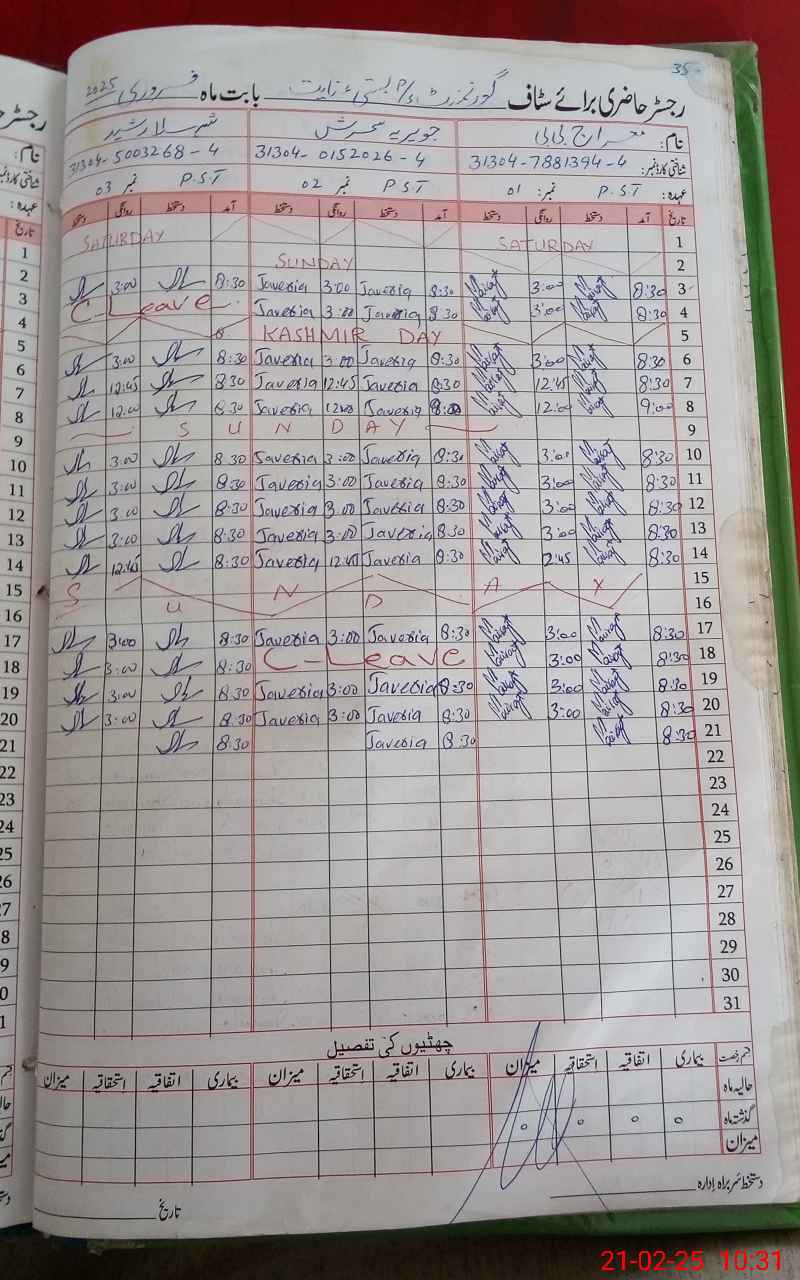 35
رجسٹر حاضری برائے سٹاف گورنمنٹ بستی بابت ماہ فروری 2025
نام: معراج بی بی جویریہ سحرش
شناختی کارڈ نمبر: 31304-7881394-4 31304-0152026-4 31304-5003268-4
عہدہ: P.S.T نمبر: 01 P.S.T نمبر 02 P.S.T نمبر 03
تاریخ آمد دستخط روانگی دستخط آمد دستخط روانگی دستخط آمد دستخط روانگی دستخط
1 SATURDAY SATURDAY
2 SUNDAY
3 8:30 3:00 8:30 Javeria 3:00 Javeria 8:30 3:00
4 8:30 3:00 8:30 Javeria 3:00 Javeria C-Leave
5 KASHMIR DAY
6 8:30 3:00 8:30 Javeria 3:00 Javeria 8:30 3:00
7 8:30 12:45 8:30 Javeria 12:45 Javeria 8:30 12:45
8 9:00 12:00 Javeria 12:00 Javeria 8:30 12:00
9 SUNDAY
10 8:30 3:00 8:30 Javeria 3:00 Javeria 8:30 3:00
11 8:30 3:00 8:30 Javeria 3:00 Javeria 8:30 3:00
12 8:30 3:00 8:30 Javeria 3:00 Javeria 8:30 3:00
13 8:30 3:00 8:30 Javeria 3:00 Javeria 8:30 3:00
14 8:30 2:45 8:30 Javeria 12:45 Javeria 8:30 12:45
15 S U N D A Y
16
17 8:30 3:00 8:30 Javeria 3:00 Javeria 8:30 3:00
18 8:30 3:00 C-Leave 8:30 3:00
19 8:30 3:00 8:30 Javeria 3:00 Javeria 8:30 3:00
20 8:30 3:00 8:30 Javeria 3:00 Javeria 8:30 3:00
21 8:30 8:30 Javeria 8:30
22
23
24
25
26
27
28
29
30
31
چھٹیوں کی تفصیل
قسم رخصت بیماری اتفاقیہ استحقاقیہ میزان بیماری اتفاقیہ استحقاقیہ میزان بیماری اتفاقیہ استحقاقیہ میزان
حالیہ ماہ
گذشتہ ماہ 0 0 0 0
میزان
دستخط سربراہ ادارہ
تاریخ
21-02-25 10:31